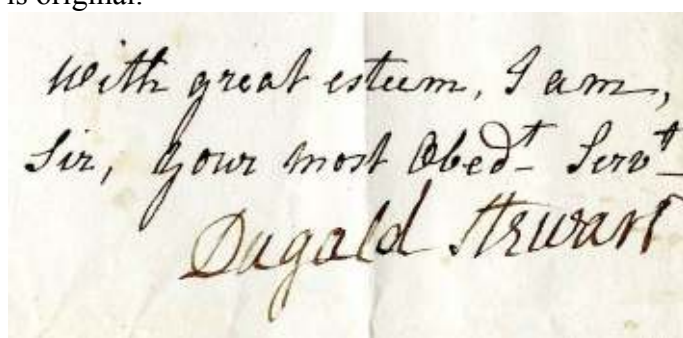 is original.
With great esteem, I am,
Sir, your most Obedt- Servt-
Dugald Stewart